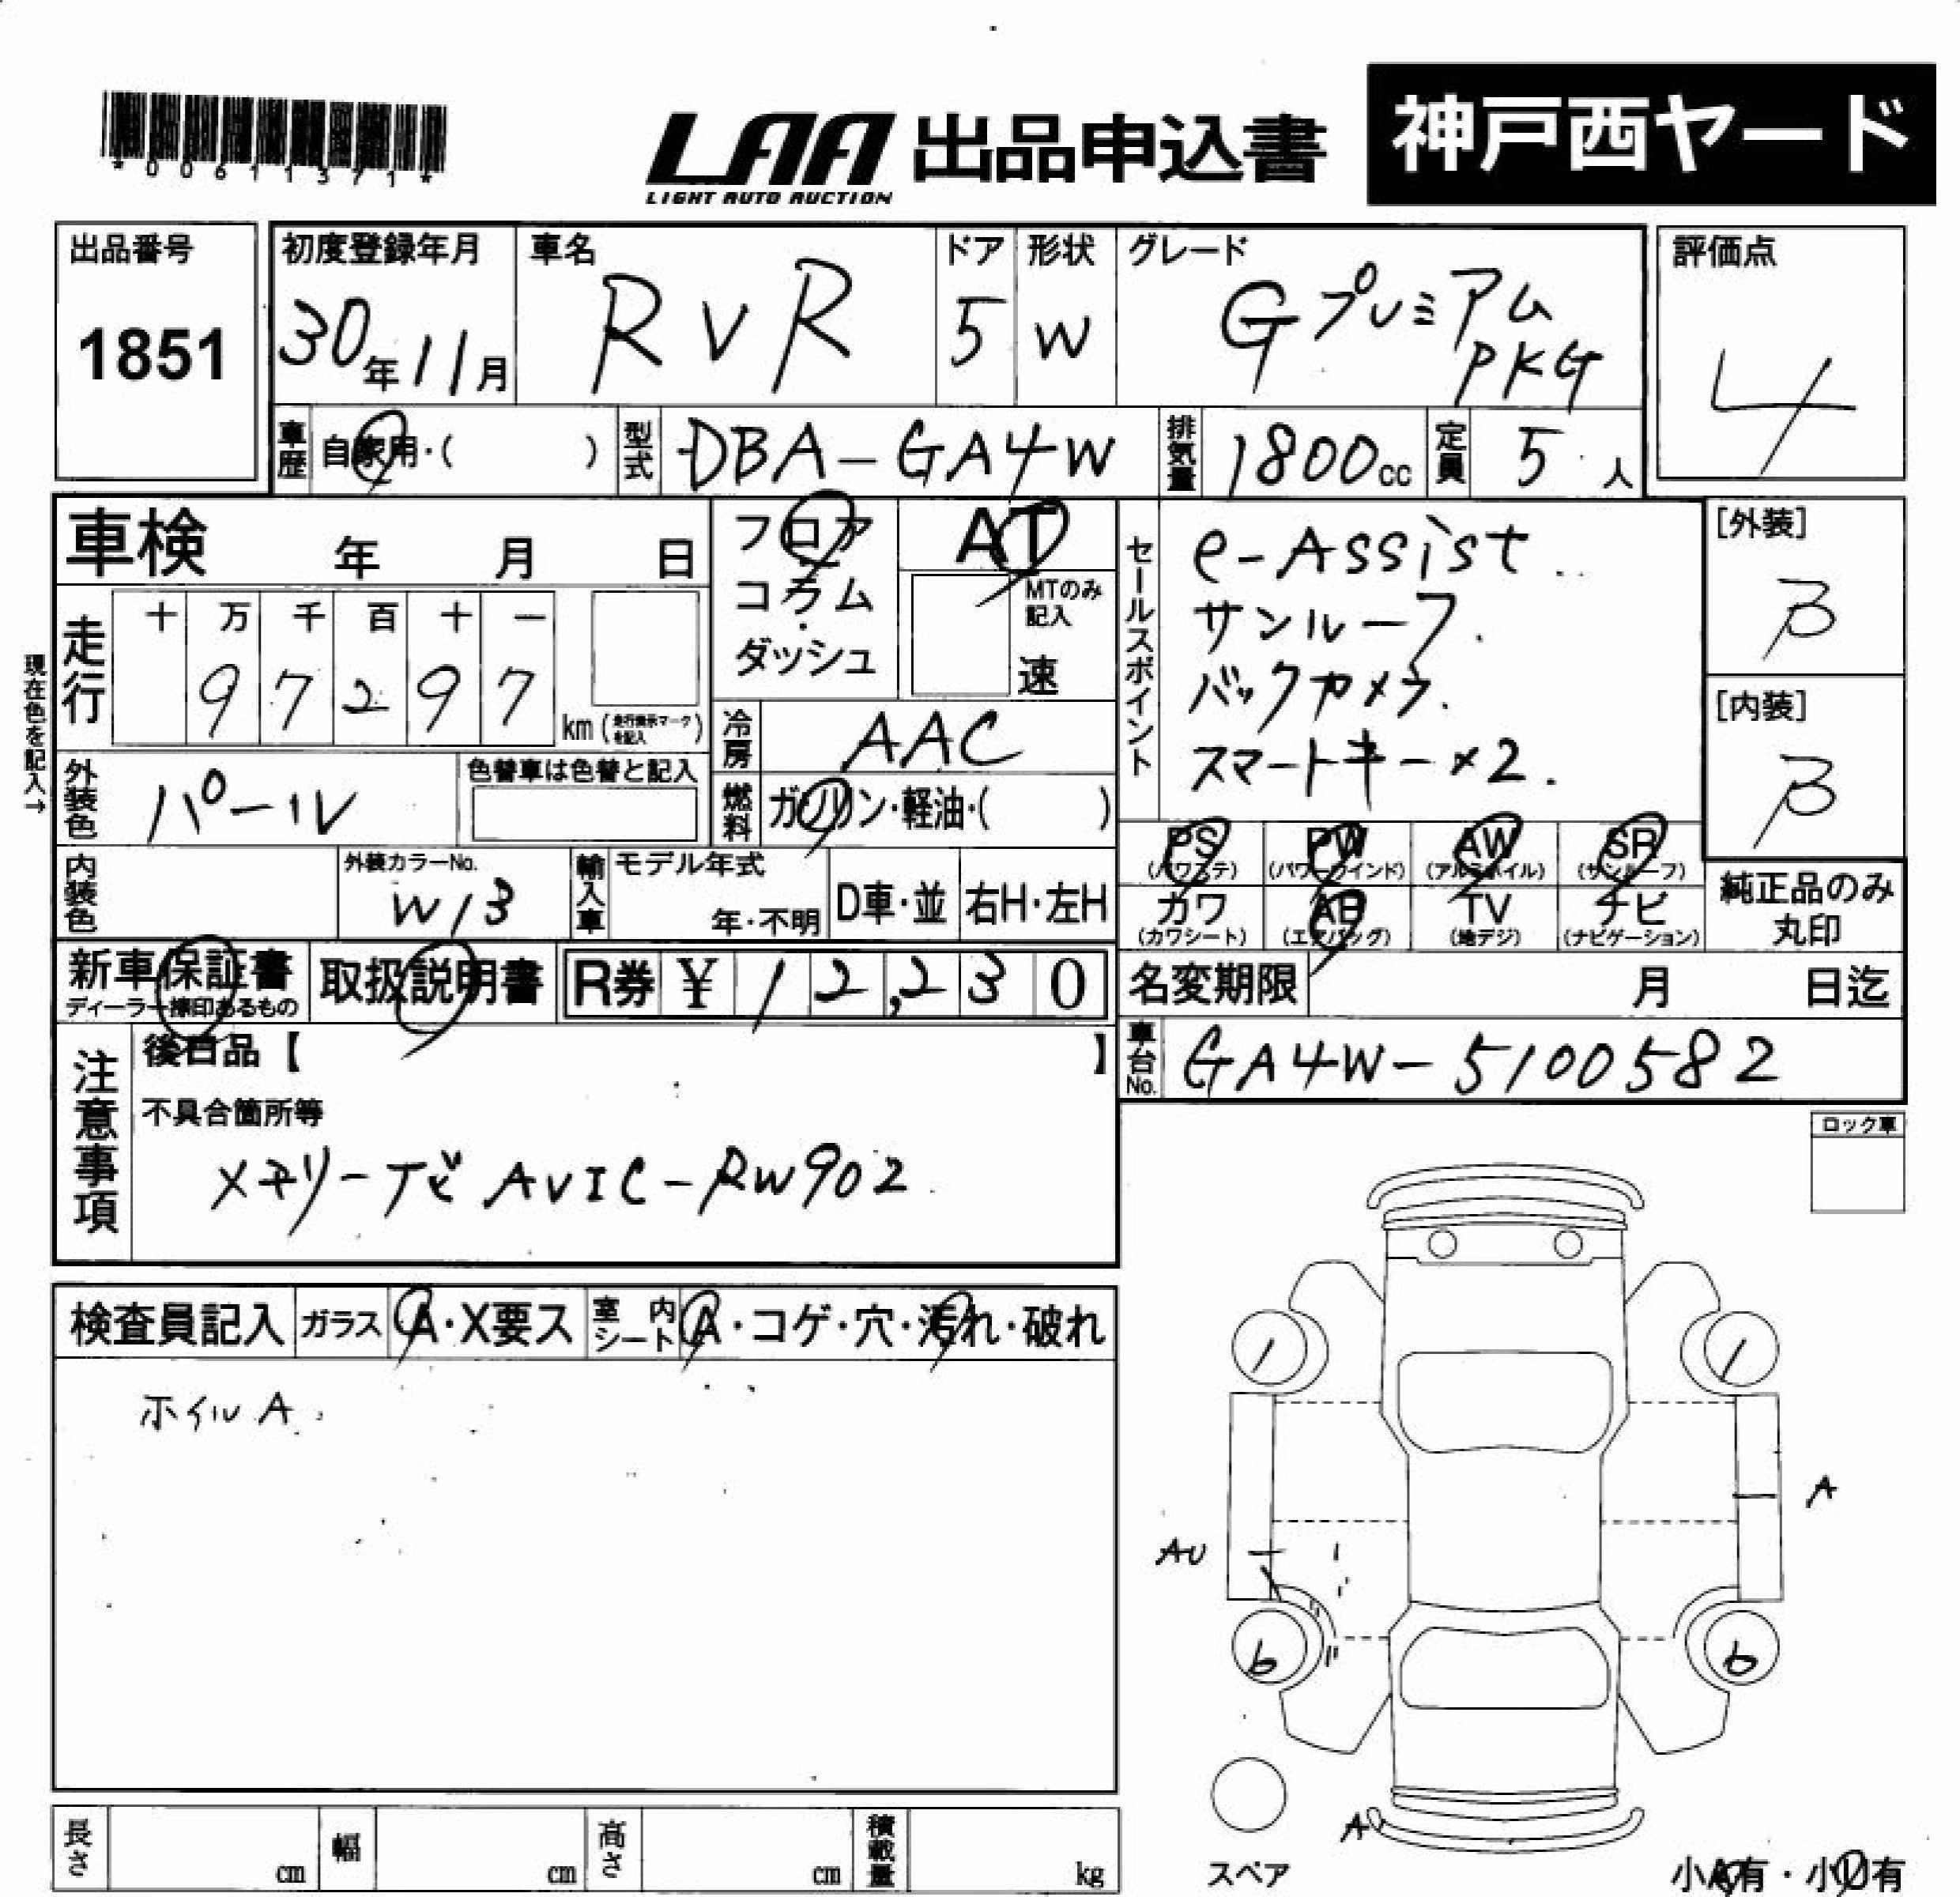 *00611371*
LAA 出品申込書
LIGHT AUTO AUCTION
神戸西ヤード
出品番号
1851
初度登録年月
30年11月
車名
RVR
ドア
5
形状
W
グレード
Gプレミアム
PKG
評価点
4
車歴
自家用・( )
型式
DBA-GA4W
排気量
1800cc
定員
5人
車検 年 月 日
現在色を記入→
走行
十 万 千 百 十 一
9 7 2 9 7
km(走行表示マークを記入)
フロア
コラム
ダッシュ
AT
MTのみ
記入
速
冷房
AAC
燃料
ガソリン・軽油・( )
セールスポイント
e-Assist.
サンルーフ.
バックカメラ.
スマートキー×2.
[外装]
B
[内装]
B
外装色
パール
色替車は色替と記入
内装色
外装カラーNo.
W13
輸入車
モデル年式
年・不明
D車・並
右H・左H
PS
(パワステ)
PW
(パワーウインド)
AW
(アルミホイル)
SR
(サンルーフ)
カワ
(カワシート)
AB
(エアバッグ)
TV
(地デジ)
ナビ
(ナビゲーション)
純正品のみ
丸印
新車保証書
ディーラー捺印あるもの
取扱説明書
R券 ¥ 12,230
名変期限 月 日迄
注意事項
後日品【 】
不具合箇所等
メモリーナビ AVIC-RW902
車台No.
GA4W-5100582
ロック車
検査員記入
ガラス
A・X要ス
室内
シート
A・コゲ・穴・汚れ・破れ
ホイルA.
A
AU
b
b
A
スペア
小A有・小U有
長さ cm
幅 cm
高さ cm
積載量 kg